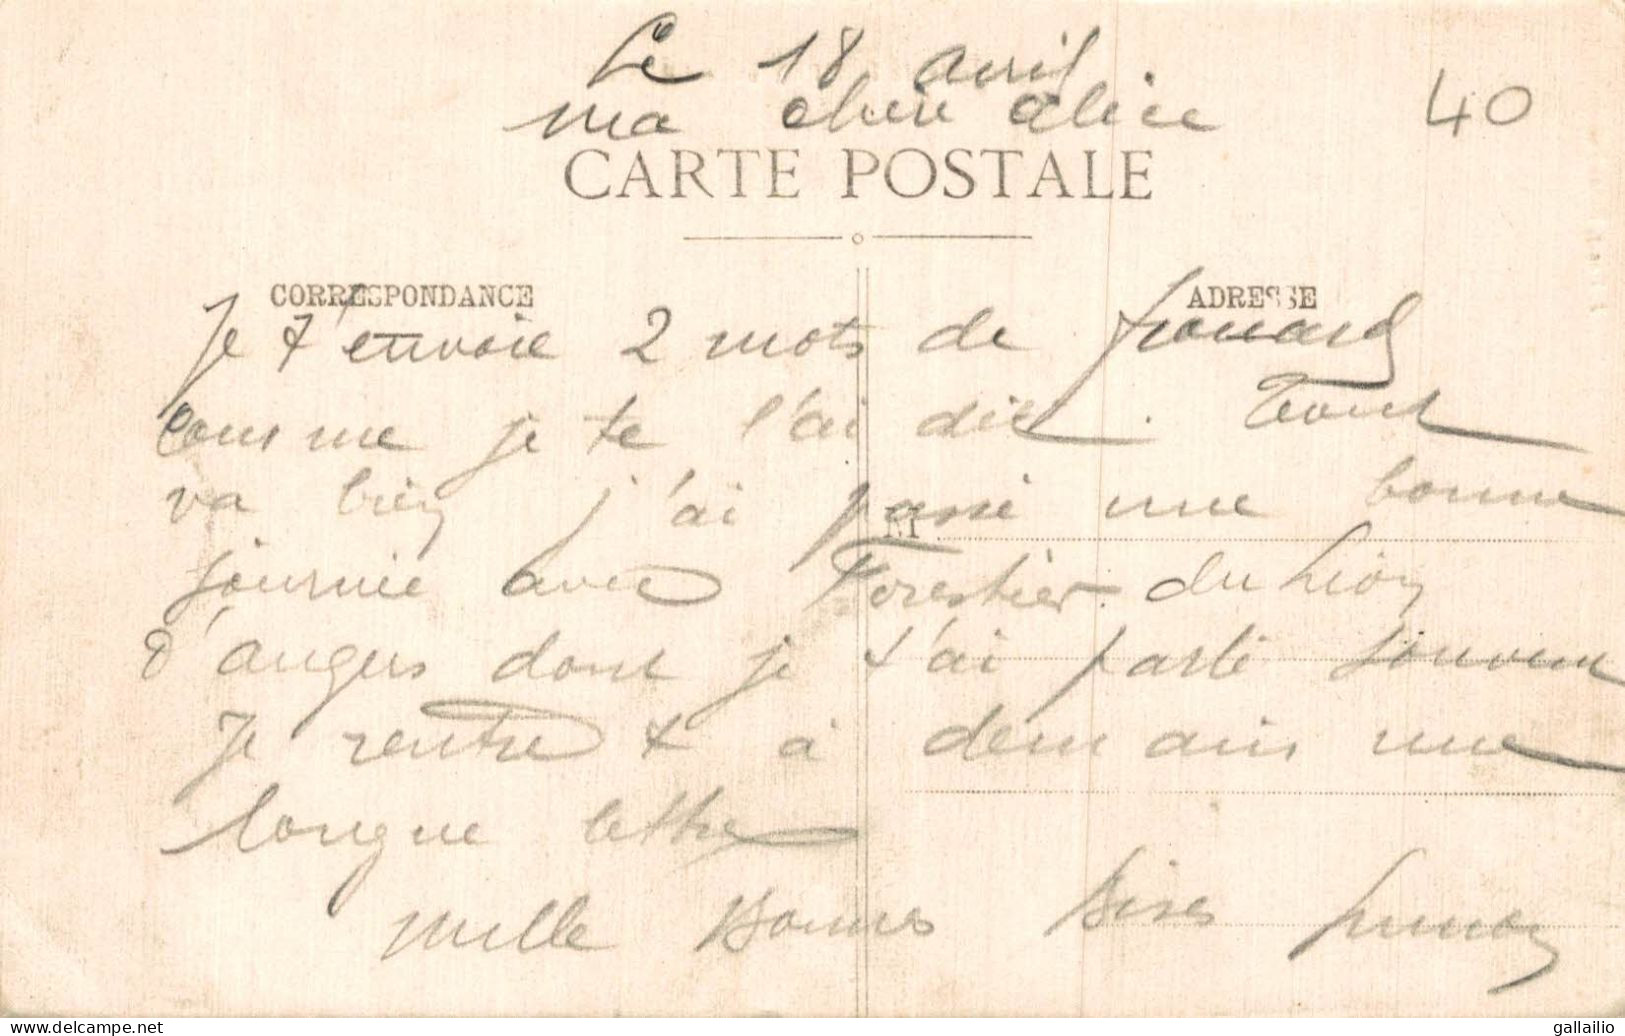 Le 18 avril
ma chere alice
40
CARTE POSTALE
CORRESPONDANCE
ADRESSE
Je t'envoie 2 mots de frouard
comme je te l'ai dit. Tout
va bien j'ai passé une bonne
M
journée avec Forestier du Lion
d'angers dont je t'ai parlé souvent
Je rentre + à demain une
longue lettre
Mille Bonnes Bises
gallailio
www.delcampe.net